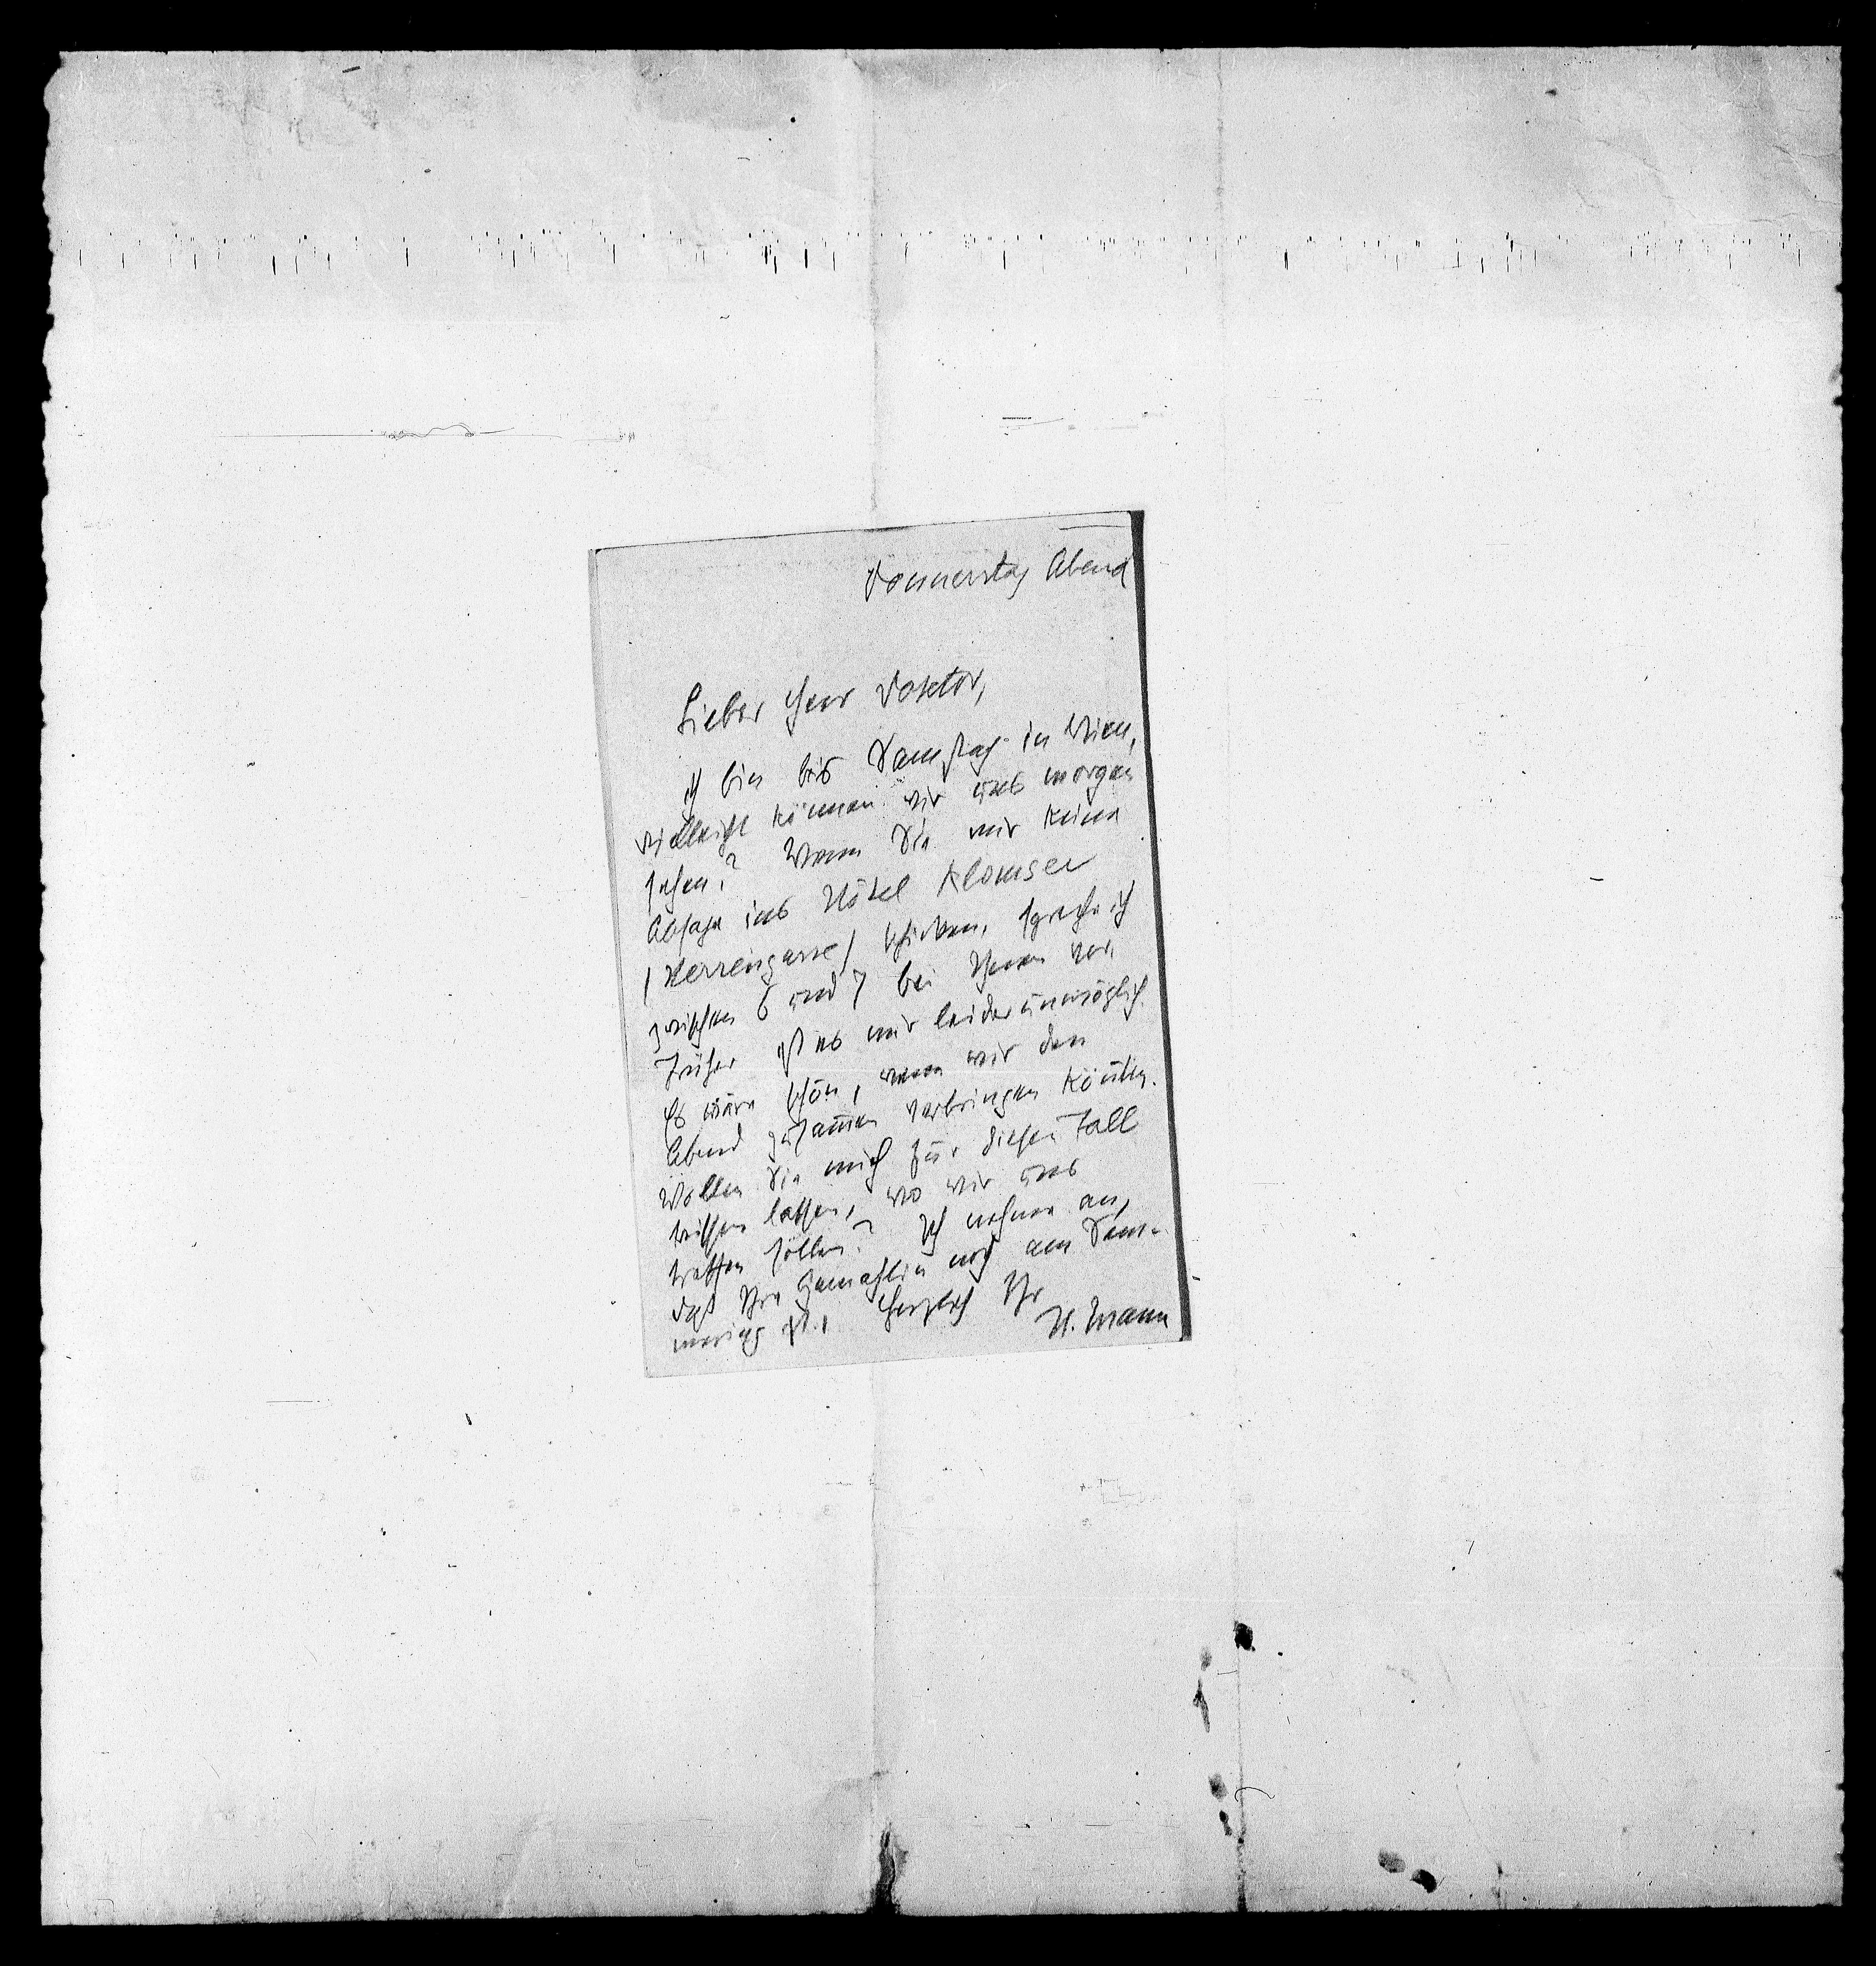 Donnerstag Abend
Lieber Herr Doktor,
ich bin bis Samstag in Wien,
vielleicht können wir uns morgen
sehen? Wenn Sie mir keine
Absage ins Hôtel Klomser
(Herrengasse) schicken, spreche ich
zwischen 6 und 7 bei Ihnen vor.
Früher ist es mir leider unmöglich.
Es wäre schön, wenn wir den
Abend zusam̅en verbringen könnten.
Wollen Sie mich für diesen Fall
wissen lassen, wo wir uns
treffen sollen? Ich nehme an,
daß Ihre Gemahlin noch am Sem-
mering ist. Herzlich Ihr
H. Mann